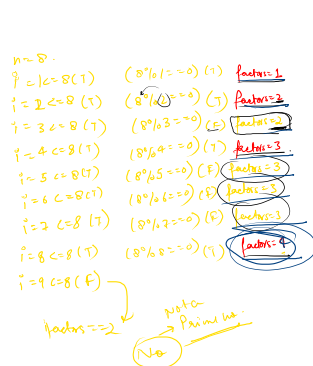 n=8.
i=1<=8(T) (8%1==0)(T) factors=1
i=2<=8(T) (8%2==0)(T) factors=2
i=3<=8(T) (8%3==0)(F) factors=2
i=4<=8(T) (8%4==0)(T) factors=3.
i=5<=8(T) (8%5==0)(F) factors=3
i=6<=8(T) (8%6==0)(F) factors=3
i=7<=8(T) (8%7==0)(F) factors=3
i=8<=8(T) (8%8==0)(T) factors=4
i=9<=8(F)
factors==2
No
Not a
Prime no.